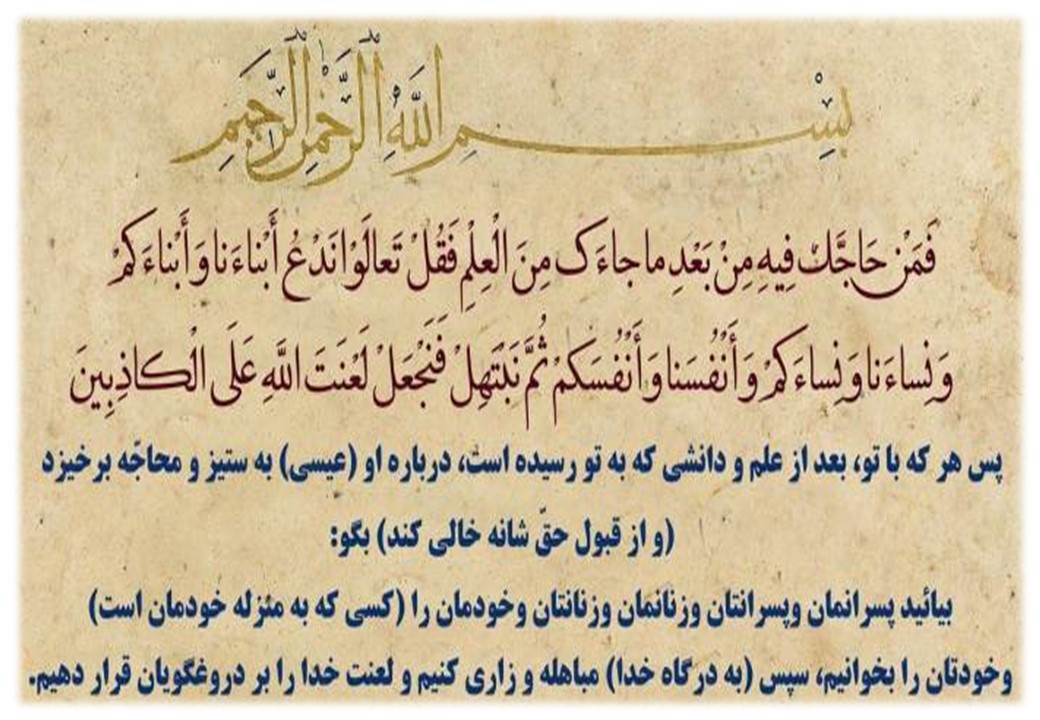 بِسْمِ اللهِ الرَّحْمٰنِ الرَّحِيمِ
فَمَنْ حَاجَّكَ فِيهِ مِنْ بَعْدِ ما جاءَكَ مِنَ الْعِلْمِ فَقُلْ تَعالَوْا نَدْعُ أَبْناءَنا وَ أَبْناءَكُمْ
وَ نِساءَنا وَ نِساءَكُمْ وَ أَنْفُسَنا وَ أَنْفُسَكُمْ ثُمَّ نَبْتَهِلْ فَنَجْعَلْ لَعْنَتَ اللَّهِ عَلَى الْكاذِبِينَ
پس هر که با تو، بعد از علم و دانشی که به تو رسیده است، درباره او (عیسی) به ستیز و محاجّه برخیزد
(و از قبول حقّ شانه خالی کند) بگو:
بیائید پسرانمان وپسرانتان وزنانمان وزنانتان وخودمان را (کسی که به منزله خودمان است)
وخودتان را بخوانیم، سپس (به درگاه خدا) مباهله و زاری کنیم و لعنت خدا را بر دروغگویان قرار دهیم.